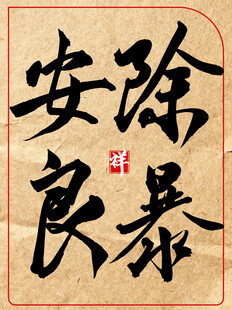 除暴
安良
祥